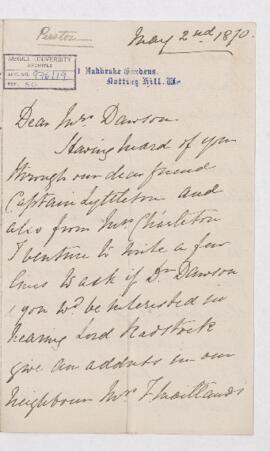 May 2nd 1870.
McGILL UNIVERSITY
ARCHIVES
ACC. NO. 976/19
REF. 50
1 Ladbroke Gardens,
Notting Hill. W.
Dear Mrs Dawson.
Having heard of you
through our dear friend
Captain Lyttleton and
also from Mrs Charleton
I venture to write a few
lines to ask if Dr Dawson
& you wd be interested in
hearing Lord Radstock
give an address in our
neighbour Mrs F Maitlands